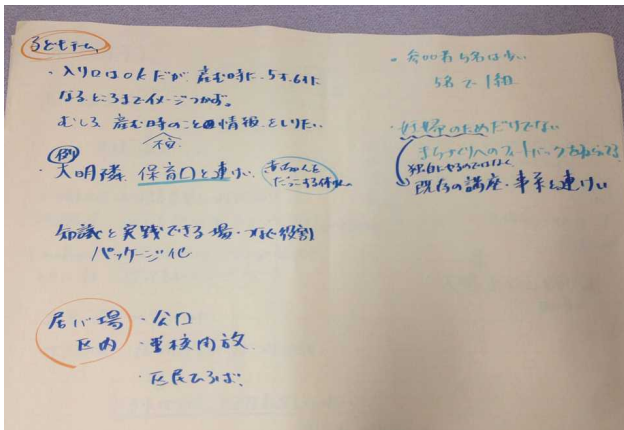 子どもチーム
・入り口はokだが 産む時に、5才、6才に
なるところまでイメージつかず。
むしろ 産む時のこと 情報をしりたい
不安
例
・大明隣 保育口と連けい
赤ちゃんを
だっこする体験
知識と実践できる場・ 役割
パッケージ化
居バ場
区内
・公口
・学校開放
・区民ひろば、
・参加者5名は少い
5名で1組
・妊婦のためだけでない
まちづくりへのフィードバック
独自にやるのではなく
既存の講座・事業と連けい